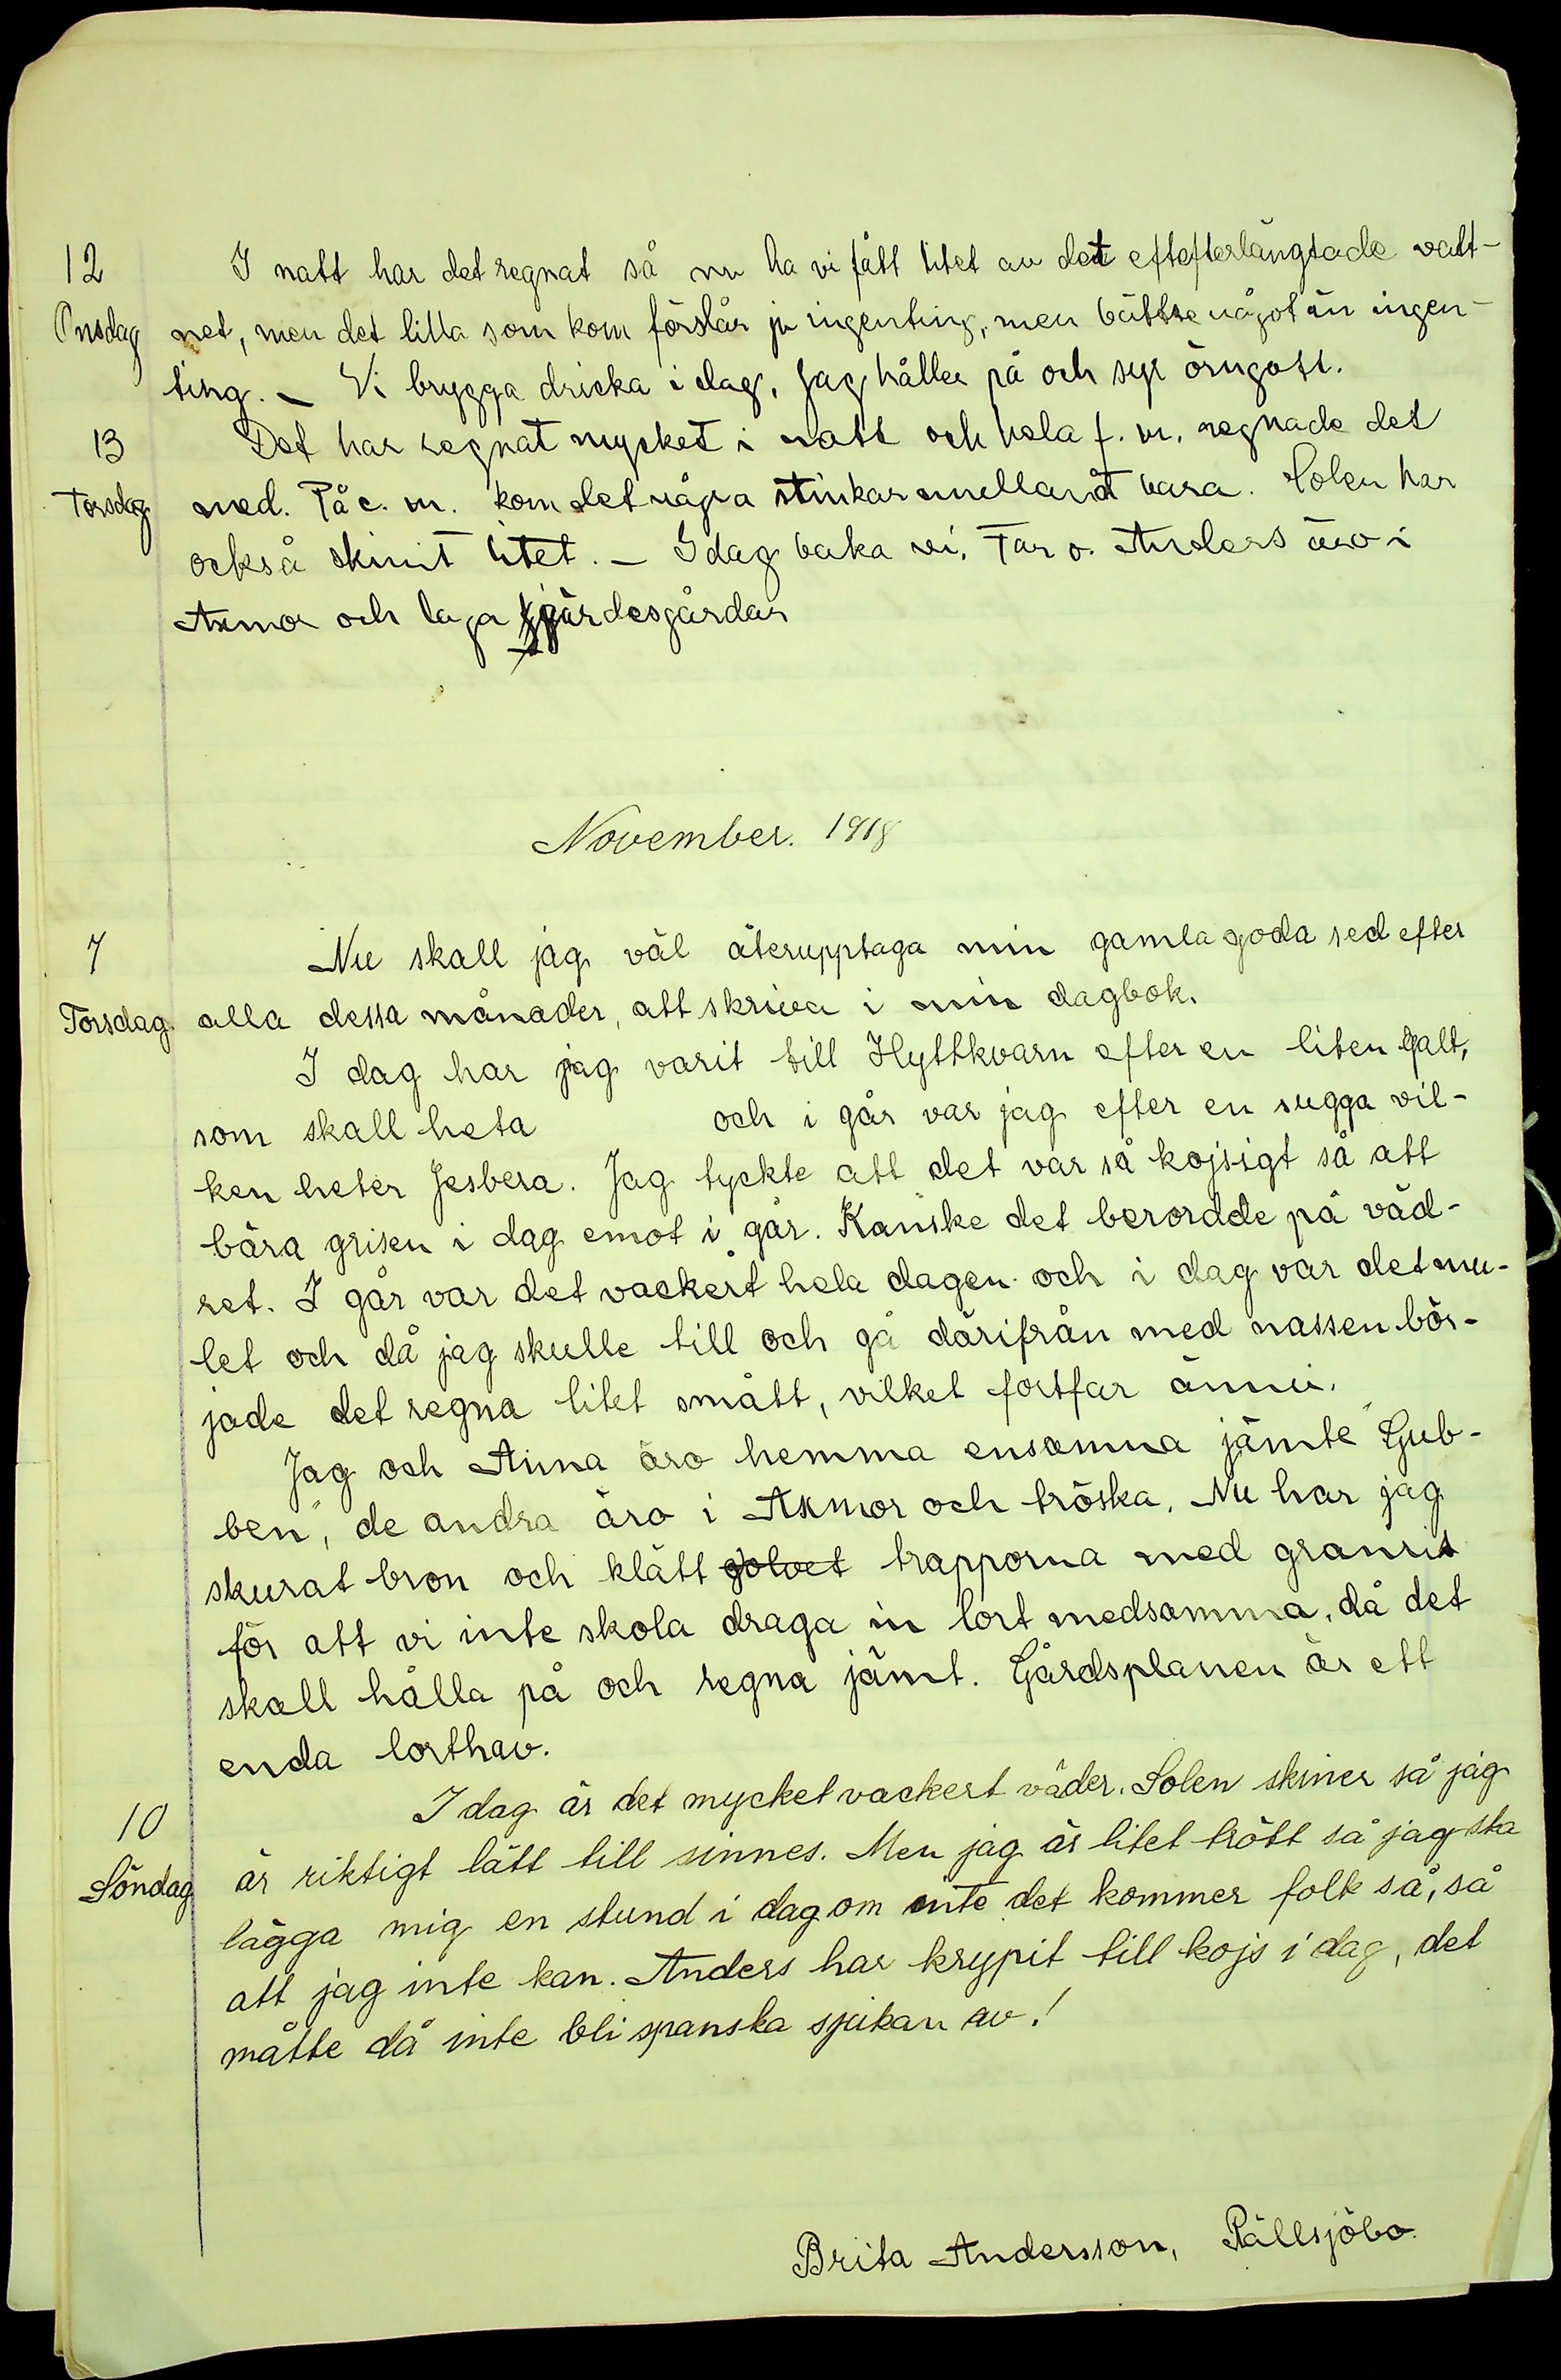 12 I natt har det regnat så nu ha vi fått litet av det eftefterlängtade vatt-
Onsdag net, men det lilla som kom förslår ju ingenting, men bättre något än ingen-
ting. – Vi brygga dricka i dag, Jag håller på och syr örngott.
13 Det har regnat mycket i natt och hela f. m. regnade det
Torsdag med. På e. m. kom det några stinkar emellanåt bara. Solen har
också skinit litet. – I dag baka vi. Far o. Anders äro i
Axmor och laga gärdesgårdar
November. 1918
7 Nu skall jag väl återupptaga min gamla goda sed efter
Torsdag. alla dessa månader, att skriva i min dagbok.
I dag har jag varit till Hyttkvarn efter en liten galt,
som skall heta och i går var jag efter en sugga vil-
ken heter Jesbera. Jag tyckte att det var så kojsigt så att
bära grisen i dag emot i går. Kanske det berordde på väd-
ret. I går var det vackert hela dagen och i dag var det mu-
let och då jag skulle till och gå därifrån med nassen bör-
jade det regna litet smått, vilket fortfar ännu.
Jag och Anna äro hemma ensamna jämte "Gub-
ben", de andra äro i Axmor och tröska. Nu har jag
skurat bron och klätt golvet trapporna med granris
för att vi inte skola draga in lort medsamma, då det
skall hålla på och regna jämt. Gårdsplanen är ett
enda lorthav.
10 I dag är det mycket vackert väder. Solen skiner så jag
Söndag är riktigt lätt till sinnes. Men jag är litet trött så jag ska
lägga mig en stund i dag om inte det kommer folk så, så
att jag inte kan. Anders har krypit till kojs i dag, det
måtte då inte bli spanska sjukan av!
Brita Andersson, Pällsjöbo.